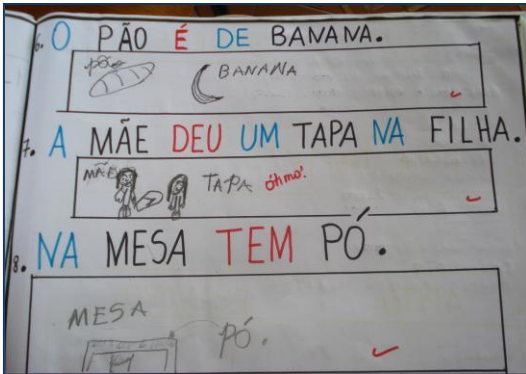 6. O PÃO É DE BANANA.
PÃO BANANA
7. A MÃE DEU UM TAPA NA FILHA.
MÃE TAPA ótimo!
8. NA MESA TEM PÓ.
MESA
PÓ.